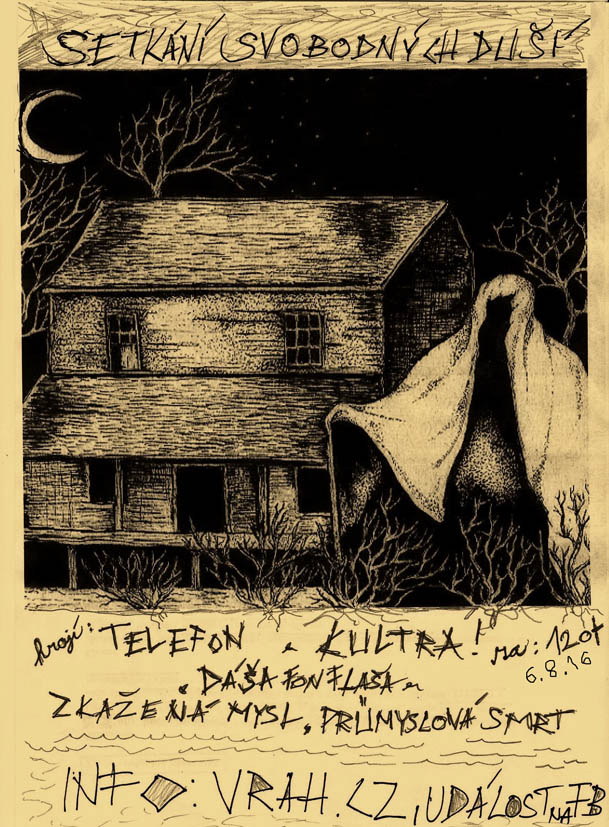 SETKÁNÍ SVOBODNÝCH DUŠÍ
hrají: TELEFON, KULTRA! za: 120,-
6.8.16
DÁŠA FON FLAŠA
ZKAŽENÁ MYSL, PRŮMYSLOVÁ SMRT
INFO: VRAH.CZ, UDÁLOST NA FB